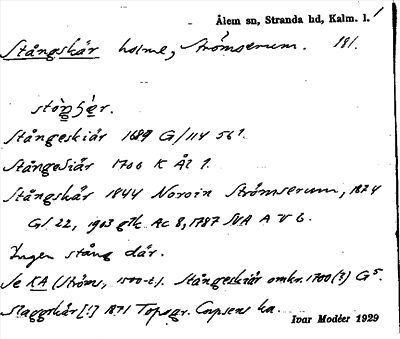 Ålem sn, Stranda hd, Kalm. l.
Stångskär holme, Strömserum. 181.
Stångeskiär 1689 G/114 56¹.
Stångesiär 1706 K Ål 9.
Stångskär 1844 Strömserum, 1874
GS 22, 1903 gtk Ac 8, 1787 SVA A V 6.
Ingen stång där.
Se KA (Ströms, 1500-t.). Stångeskiär omkr. 1700(?) G⁵.
Staggskär [!] 1871 Topogr. Corpsens ka.
Ivar Modéer 1929